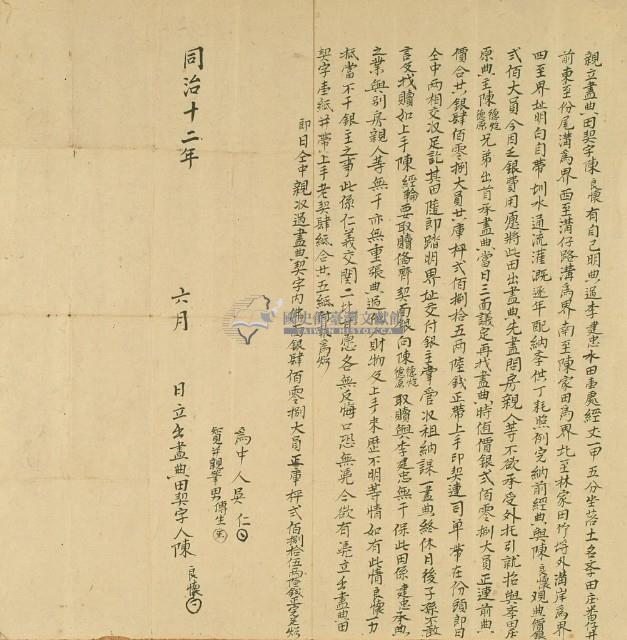 親立盡典田契字陳良懷有自己明典過李建忠水田壹處經丈一甲五分坐落土名李田庄
前東至份尾溝為界西至溝仔路溝為界南至陳家田為界北至林家田竹塆外溝岸為界
四至界址明白自帶圳水通流灌溉逐年配納李供丁耗照例完納前經典與陳良懷現典價銀
弍佰大員今因乏銀費用愿將此田出盡典先盡問房親人等不欲承受外托引就抬與李田庄
原典主陳德炭德源兄弟出首承盡典當日三面議定再找盡典時值價銀弍佰零捌大員正連前典
價合共銀肆佰零捌大員共庫秤弍佰捌拾五両陸錢正帶上手印契連司单帶在份頭即日
仝中両相交收足訖其田隨即踏明界址交付銀主掌管收租納課一盡典終休日後子孫不敢
言及找贖如上手陳經輪要取贖備齊契面銀向陳德炭德源取贖與李建忠無干保此田係建忠承典
之業與別房親人等無干亦無重張典過他人財物及上手來歷不明等情如有此情良懷一力
抵當不干銀主之事此係仁義交関二比甘愿各無反悔口恐無憑今欲有憑立出盡典田
契字壹紙并帶上手老契肆紙合共五紙付執為炤
即日仝中親收過盡典契字內佛面銀肆佰零捌大員正庫秤弍佰捌拾伍両陸錢正完足炤
為中人吳仁
覽并親筆男傳生
同治十二年 六月 日立出盡典田契字人陳良懷
國史館臺灣文獻館
TAIWAN HISTORICA